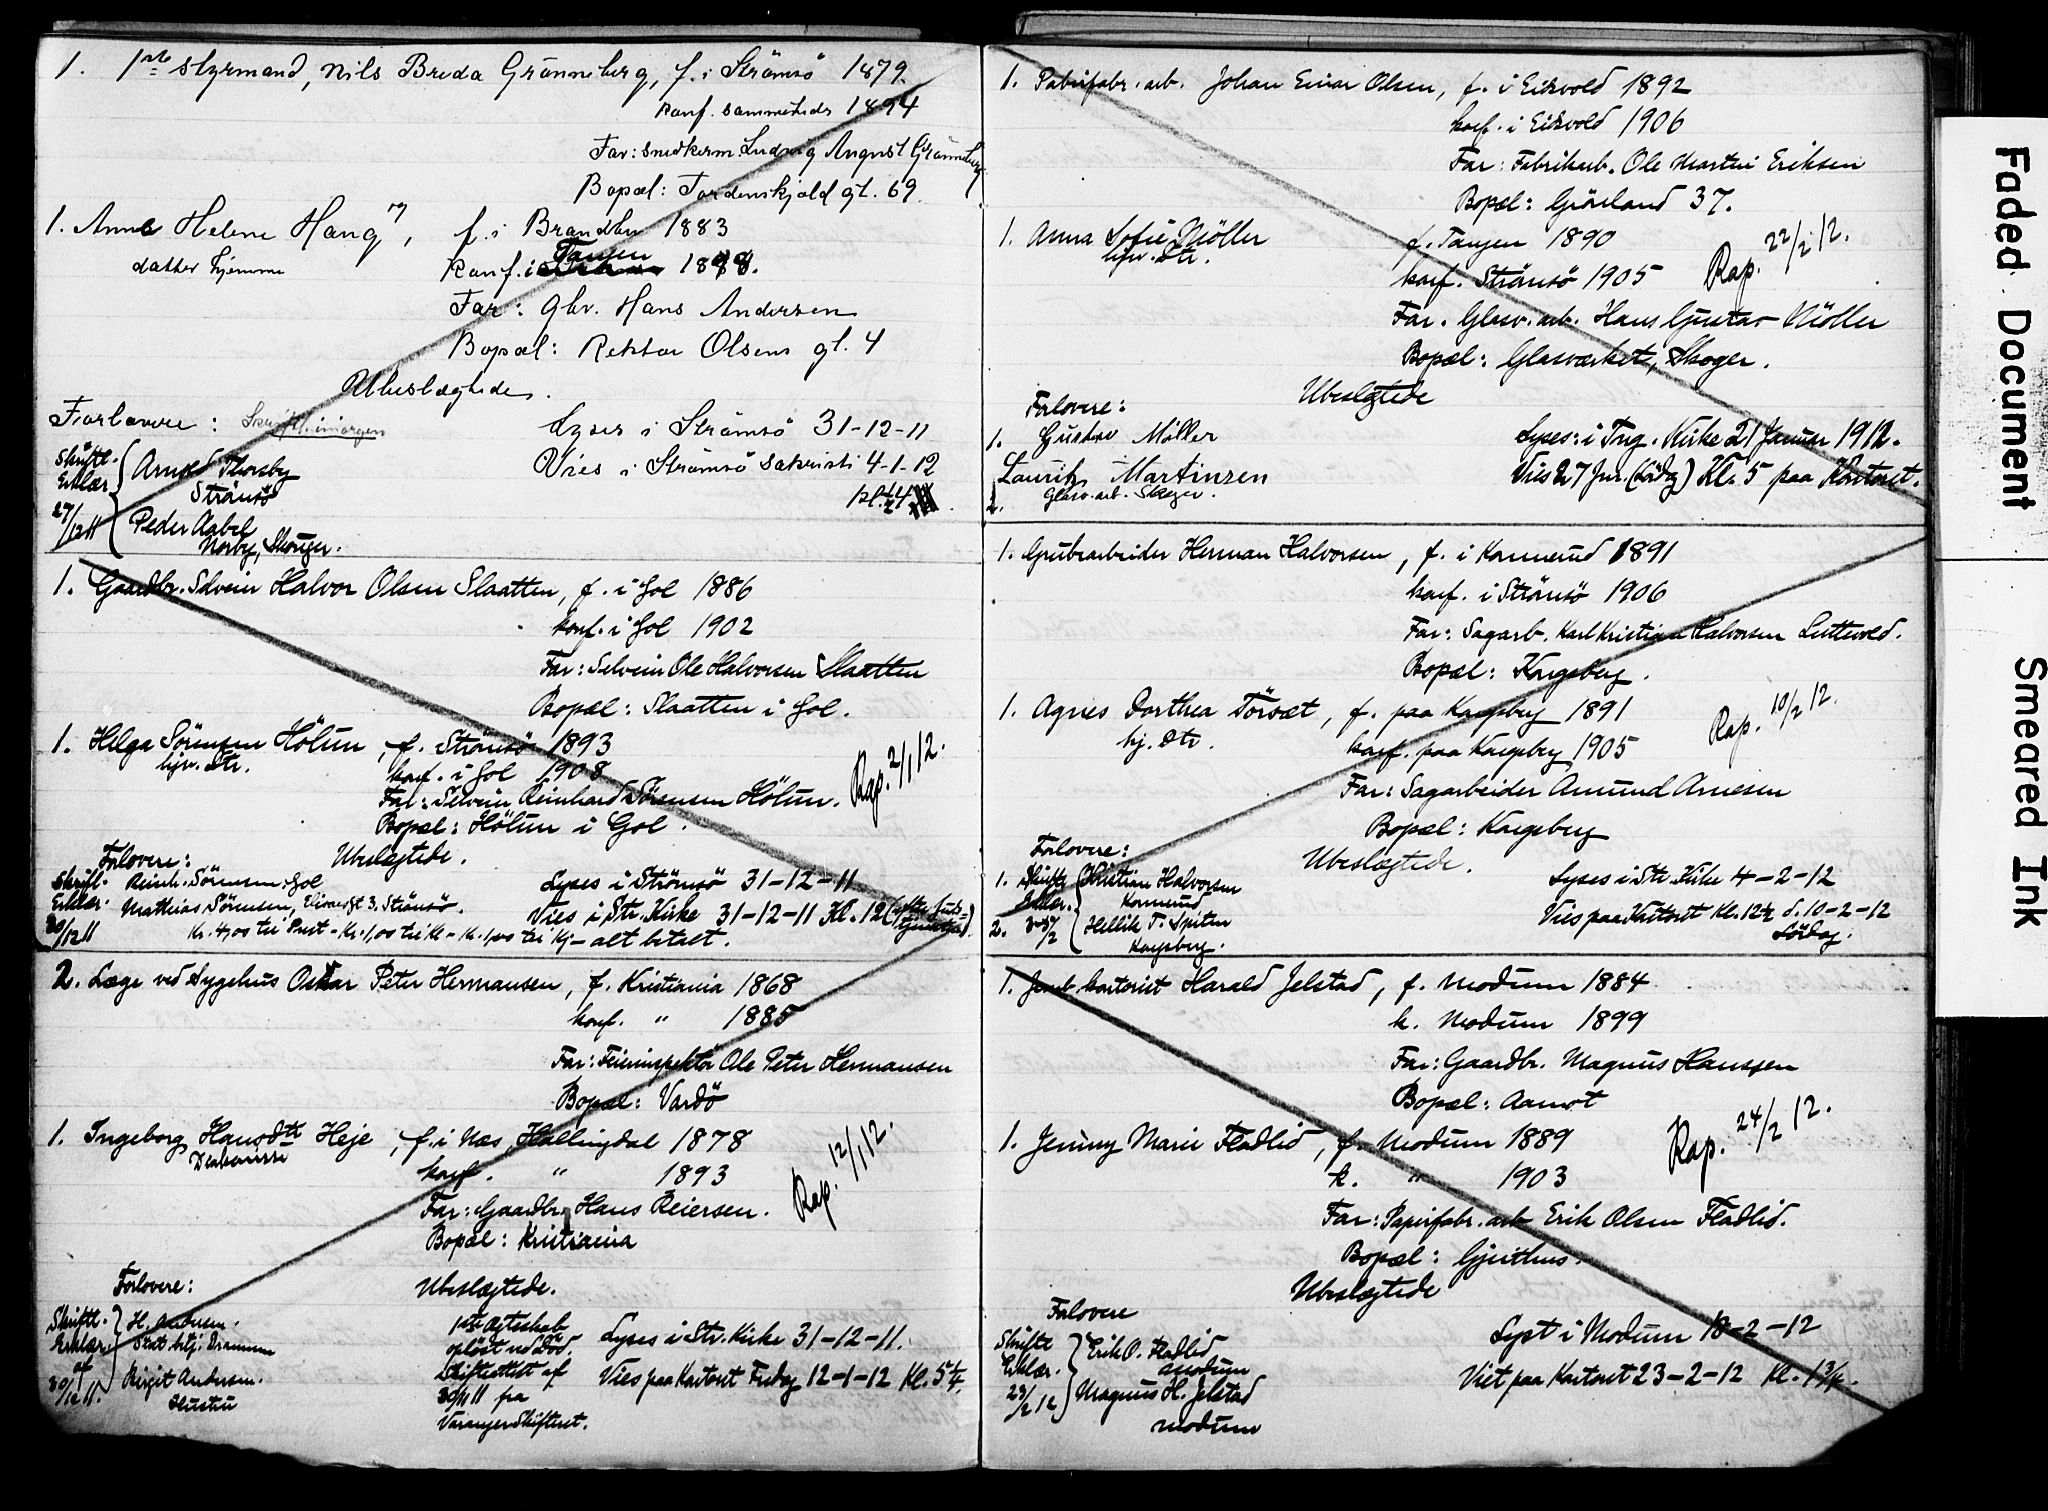 1. 1ste styrmand, Nils Breda Grönneberg, f. i Strömsö 1879.
Konf. sammesteds 1894
Far: snedkerm. Ludvig August Grönneberg
Bopæl: Tordenskjold gt. 69.
1. Anna Helene Haug, f. i Brandbu 1883
datter hjemme
Konf. i Tangen 1898.
Far: gbr. Hans Andersen
Bopæl: Rektor Olsens gt. 4
Ubeslægtede.
Forlovere:
Lyses i Strömsö 31-12-11
Skriftl. Arnold Thorsby
Erklær.
Vies i Strömsö sakristi 4-1-12
Strömsö
27/12 11
Peder Aabel
Norby, Skouger.
1. Gaardbr. Selveier Halvor Olsen Slaatten, f. i Gol 1886
konf. i Gol 1902
Far: Selveier Ole Halvorsen Slaatten
Bopæl: Slaatten i Gol.
1. Helga Sörensen Hölun, f. Strömsö 1893
hjv. dtr.
konf. i Gol 1908
Rap. 2/1 12.
Far: Selveier Reinhard Sörensen Hölun.
Bopæl: Hölun i Gol.
Forlovere: Ubeslægtede.
Skriftl. Reinh. Sörensen Gol
Lyses i Strömsö 31-12-11
Erklær. Mathias Sörensen, 3. Strömsö.
Vies i Str. Kirke 31-12-11 Kl. 12
30/12 11
Kr. 4,00 til Prest - Kr. 1,00 til Kl - Kr. 1,00 til Kj - alt betalt.
2. Læge ved Sygehus Oskar Peter Hermansen, f. Kristiania 1868
konf. " 1885
Far: Feierinspektör Ole Peter Hermansen
Bopæl: Vardö
1. Ingeborg Hansdtr Heje, f. i Næs, Hallingdal 1878
Diakonisse
konf. " 1893
Rap. 12/1 12.
Far: Gaardbr. Hans Reiersen.
Bopæl: Kristiania
Forlovere: Ubeslægtede.
Skriftl. H. Andersen.
Erklær. af
Birgit Andersen.
Hustru
30/12 11.
1ste Ægteskab
oplöst ved Död.
Skifteattest af
30/11 11 fra
Varanger Skifteret.
Lyses i Str. Kirke 31-12-11.
Vies paa Kontoret Fredag 12-1-12 Kl. 5¼.
1. Papirfabr. arb. Johan Einar Olsen, f. i Eidsvold 1892
konf. i Eidsvold 1906
Far: Fabrikarb. Ole Martin Eriksen
Bopæl: Grönland 37.
1. Anna Sofie Möller f. Tangen 1890
hjv. dtr.
Rap. 22/2 12.
konf. Strömsö 1905
Far. Glasv. arb. Hans Gustav Möller
Bopæl: Glasværket, Skoger.
Ubeslægtede
Forlovere:
1. Gustav Möller
Lyses: i Tng. Kirke 21 Januar 1912.
2. Laurits Martinsen
Glasv. arb. Skoger.
Vies 27 Jnr. (Lördag) Kl. 5 paa Kontoret.
1. Grubearbeider Herman Halvorsen, f. i Konnerud 1891
konf. i Strömsö 1906
Far: Sagarb. Karl Kristian Halvorsen
Bopæl: Kongsberg.
1. Agnes Dorthea Törsæt, f. paa Kongsberg 1891
hj. dtr.
Rap. 10/2 12.
konf. paa Kongsberg 1905
Far: Sagarbeider Amund Arnesen
Bopæl: Kongsberg
Forlovere: Ubeslægtede.
1. Skriftl. Kristian Halvorsen
Erklær. Konnerud
Lyses i Str. Kirke 4-2-12
2. Hellik T. Spiten
Kongsberg.
Vies paa Kontoret Kl. 12½ d. 10-2-12
Lördag.
1. Jernb. kontorist Harald Jelstad, f. Modum 1884
k. Modum 1899
Far: Gaardbr. Magnus Hanssen
Bopæl: Aamot
1. Jenny Marie Fladlid, f. Modum 1889
k. " 1903
Rap. 24/2 12.
Far: Papirfabr. arb Erik Olsen Fladlid.
Bopæl: Gjeithus.
Ubeslægtede
Forlovere
Skriftl. Erklær. 23/2 12
Erik O. Fladlid
Modum
Magnus H. Jelstad
Modum
Lyst i Modum 18-2-12
Viet paa Kontoret 23-2-12 Kl. 1¾.
Faded Document
Smeared Ink